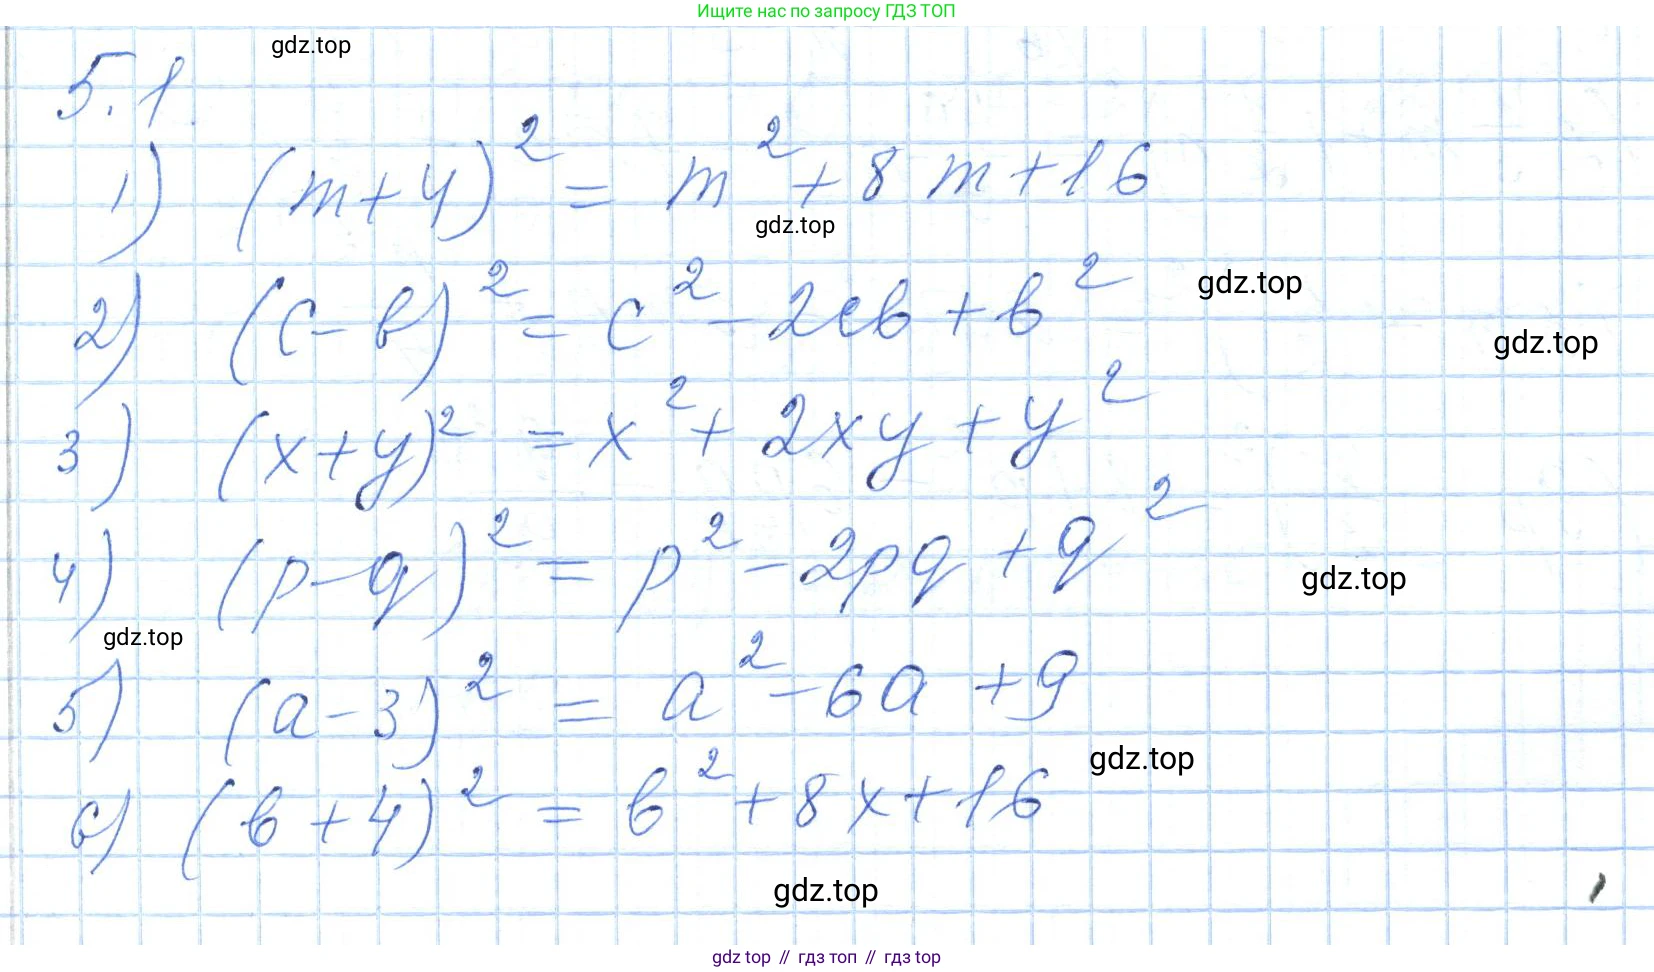 Ищите нас по запросу ГДЗ ТОП
gdz.top
5.1
1) (m+4)² = m² + 8m + 16
gdz.top
2) (c-b)² = c² - 2cb + b²
gdz.top
gdz.top
3) (x+y)² = x² + 2xy + y²
4) (p-q)² = p² - 2pq + q²
gdz.top
gdz.top
5) (a-3)² = a² - 6a + 9
gdz.top
6) (b+4)² = b² + 8x + 16
gdz.top
gdz top // гдз топ // gdz.top